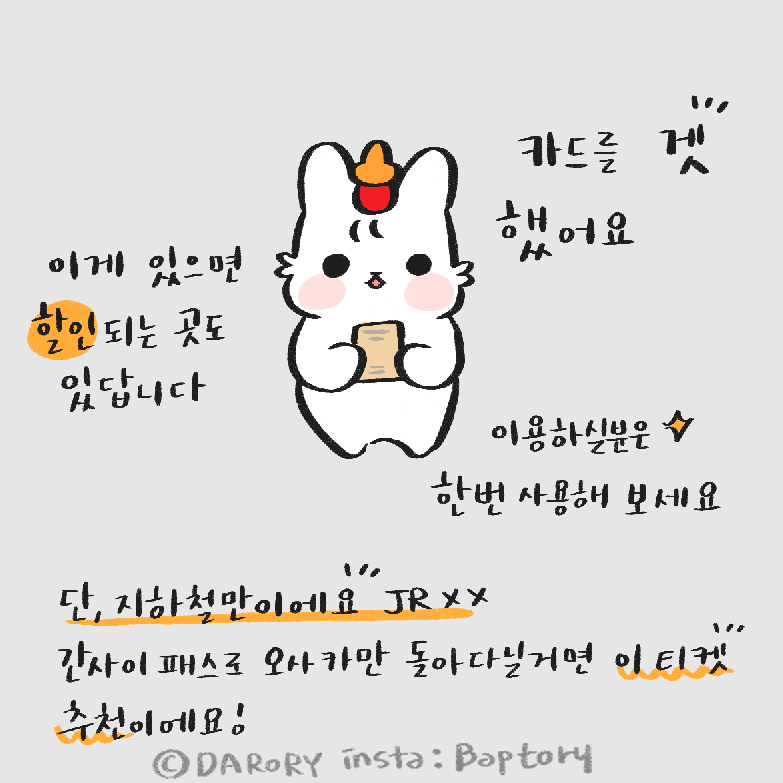 카드를 겟
했어요
이게 있으면
할인되는 곳도
있답니다
이용하실분은
한번 사용해 보세요
단, 지하철만이에요 JR XX
간사이 패스로 오사카만 돌아다닐거면 이 티켓
추천이에요!
©DARORY insta : Baptory